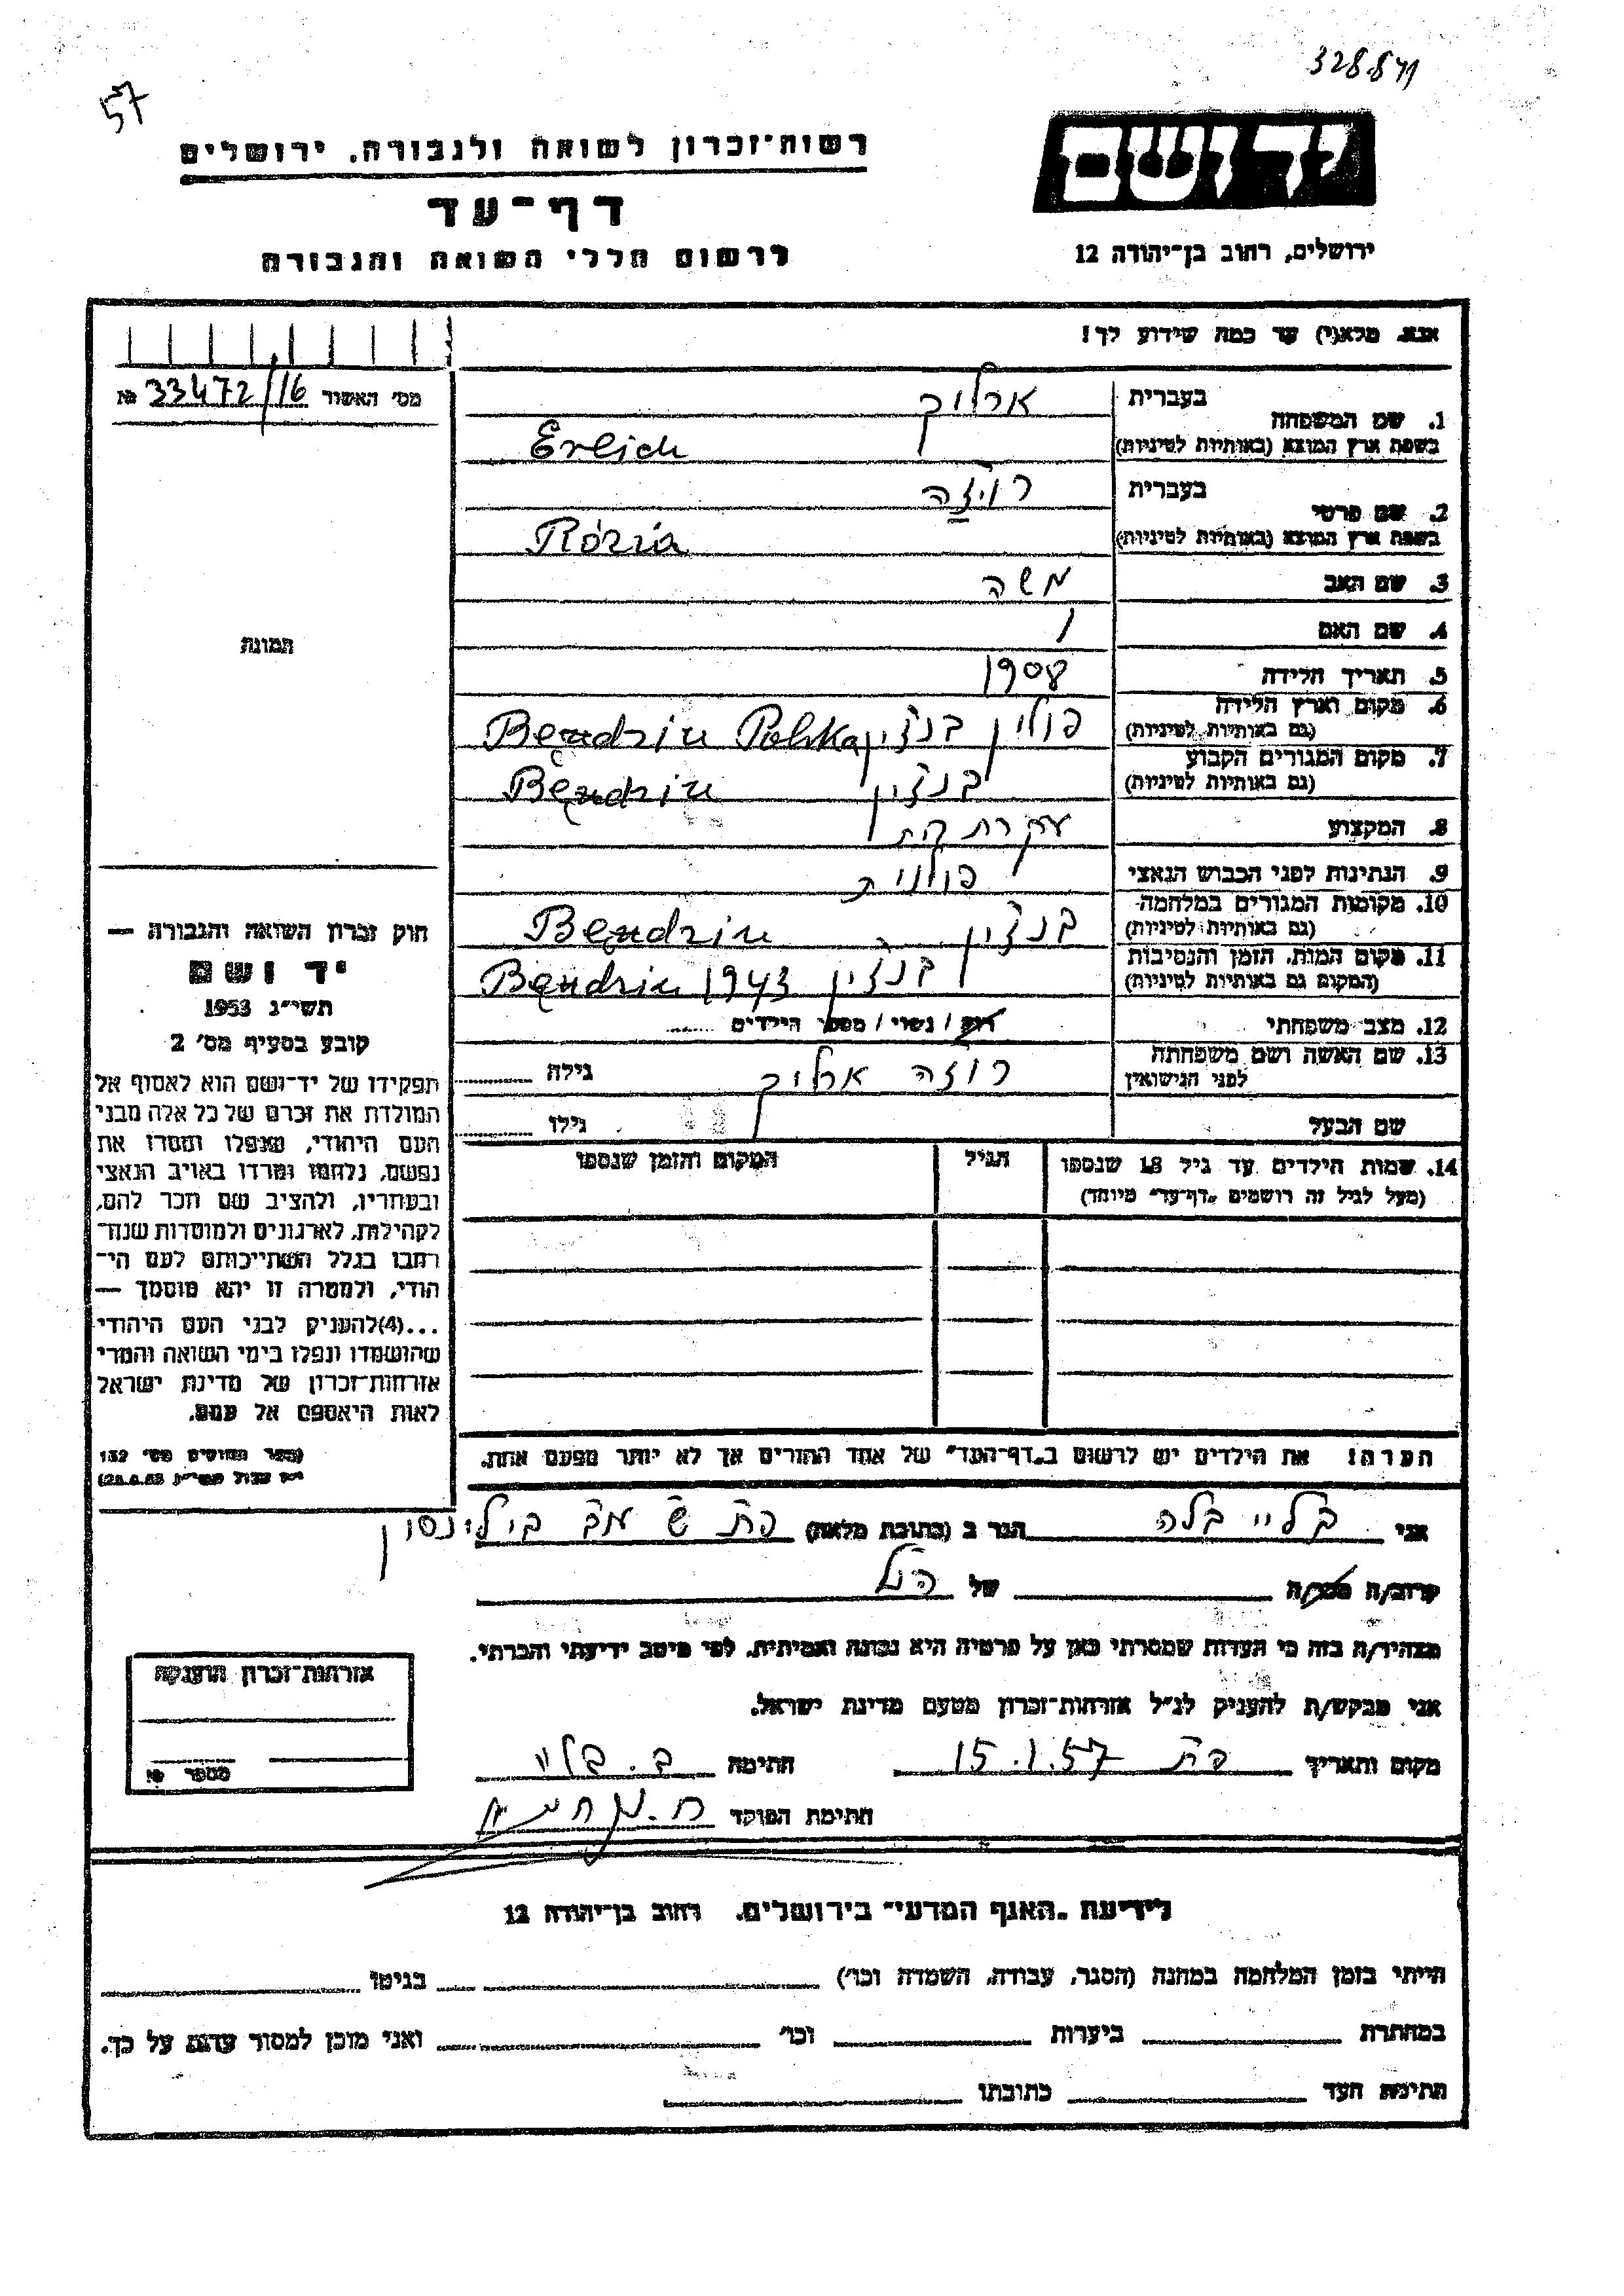 328.871
57
יד ושם
רשות־זכרון לשואה ולגבורה, ירושלים
דף־עד
ירושלים, רחוב בן־יהודה 12
לרשום חללי השואה והגבורה
אנא, מלא(י) עד כמה שידוע לך!
מס׳ האשור 33472/16 №
1. שם המשפחה
בעברית ארליך
בשפת ארץ המוצא (באותיות לטיניות) Erlich
2. שם פרטי
בעברית רוזה
בשפת ארץ המוצא (באותיות לטיניות) Rózia
3. שם האב משה
4. שם האם /
5. תאריך הלידה 1908
6. מקום וארץ הלידה פולין בנדזין Bendzin Polska
(גם באותיות לטיניות)
7. מקום המגורים הקבוע בנדזין Bendzin
(גם באותיות לטיניות)
8. המקצוע עקרת בית
9. הנתינות לפני הכבוש הנאצי פולנית
10. מקומות המגורים במלחמה בנדזין Bendzin
(גם באותיות לטיניות)
11. מקום המות, הזמן והנסיבות בנדזין 1943 Bendzin
(המקום גם באותיות לטיניות)
12. מצב משפחתי רווק / נשוי / מספר הילדים
13. שם האשה ושם משפחתה רוזה ארליך גילה
לפני הנישואין
שם הבעל גילו
14. שמות הילדים עד גיל 18 שנספו הגיל המקום והזמן שנספו
(מעל לגיל זה רושמים „דף־עד״ מיוחד)
הערה: את הילדים יש לרשום ב„דף־העד״ של אחד ההורים אך לא יותר מפעם אחת.
תמונה
חוק זכרון השואה והגבורה —
יד ושם
תשי״ג 1953
קובע בסעיף מס׳ 2
תפקידו של יד־ושם הוא לאסוף אל
המולדת את זכרם של כל אלה מבני
העם היהודי, שנפלו ומסרו את
נפשם, נלחמו ומרדו באויב הנאצי
ובעוזריו, ולהציב שם וזכר להם,
לקהילות, לארגונים ולמוסדות שנח־
רבו בגלל השתייכותם לעם הי־
הודי, ולמטרה זו יהא מוסמך —
...(4)להעניק לבני העם היהודי
שהושמדו ונפלו בימי השואה והמרי
אזרחות־זכרון של מדינת ישראל
לאות היאספם אל עמם.
(ספר החוקים מס׳ 132
אני בלה הגר ב (כתובת מלאה) פת בילינסון
קרוב/ה מכר/ה של הנ״ל
מצהיר/ה בזה כי העדות שמסרתי כאן על פרטיה היא נכונה ואמיתית, לפי מיטב ידיעתי והכרתי.
אני מבקש/ת להעניק לנ״ל אזרחות־זכרון מטעם מדינת ישראל.
מקום ותאריך פת 15.1.57 חתימה
חתימת הפוקד
אזרחות־זכרון הוענקה
מספר №
לידיעת „האגף המדעי״ בירושלים, רחוב בן־יהודה 12
הייתי בזמן המלחמה במחנה (הסגר, עבודה, השמדה וכו׳) בגיטו
במחתרת ביערות וכו׳ ואני מוכן למסור עדות על כך.
חתימת העד כתובתו